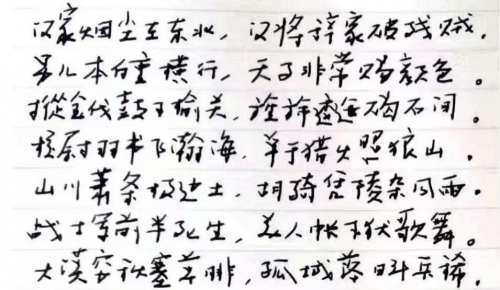 汉家烟尘在东北，汉将辞家破残贼，
男儿本自重横行，天子非常赐颜色。
摐金伐鼓下榆关，旌旆逶迤碣石间。
校尉羽书飞瀚海，单于猎火照狼山。
山川萧条极边土，胡骑凭陵杂风雨。
战士军前半死生，美人帐下犹歌舞。
大漠穷秋塞草腓，孤城落日斗兵稀，